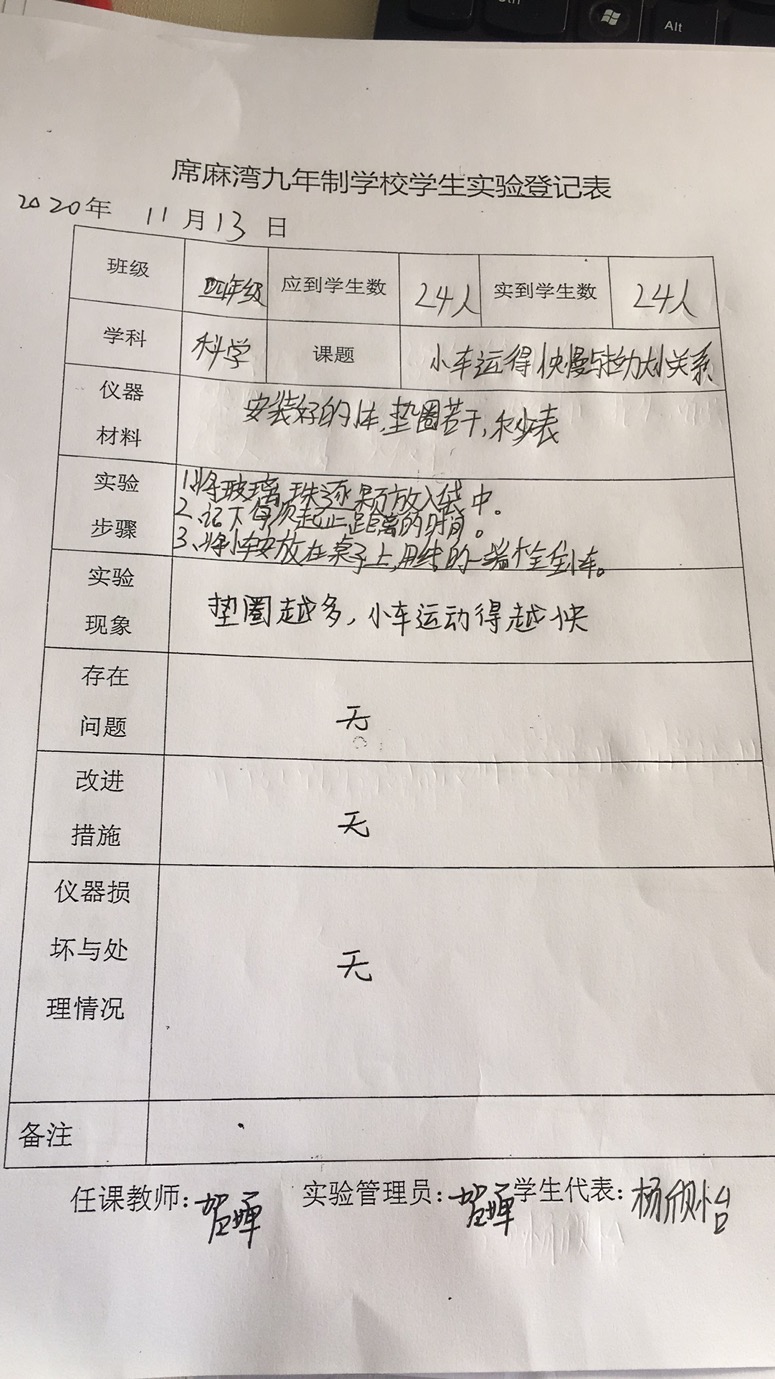 Ctrl
Alt
席麻湾九年制学校学生实验登记表
2020年 11月13日
班级 四年级 应到学生数 24人 实到学生数 24人
学科 科学 课题 小车运得快慢与拉力大小关系
仪器
材料
安装好的小车,垫圈若干,秒表
实验
步骤
1.将玻璃珠逐颗放入袋中。
2.记下每次起止距离的时间。
3.将小车安放在桌子上,用线的一端拴住小车。
实验
现象
垫圈越多,小车运动得越快
存在
问题
无
改进
措施
无
仪器损
坏与处
理情况
无
备注
任课教师:贺婵 实验管理员:贺婵 学生代表:杨欣怡